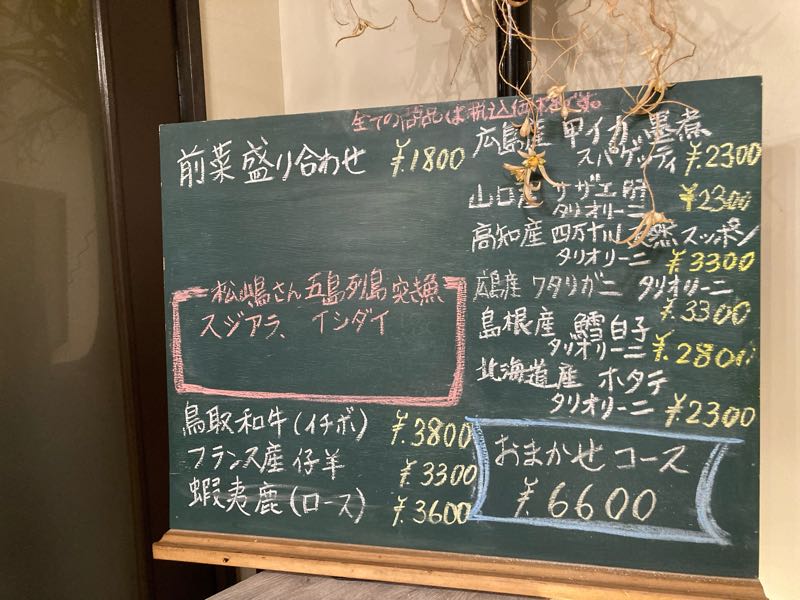 全ての商品は税込価格です。
前菜 盛り合わせ ¥.1800
松嶋さん 五島列島 突き漁
スジアラ、 イシダイ
鳥取和牛(イチボ) ¥.3800
フランス産 仔羊 ¥.3300
蝦夷鹿(ロース) ¥.3600
広島産 甲イカ 墨煮
スパゲッティ ¥2300
山口産 サザエ 肝
タリオリーニ ¥2300
高知産 四万十川 天然 スッポン
タリオリーニ ¥.3300
広島産 ワタリガニ タリオリーニ
¥.3300
島根産 鱈白子
タリオリーニ ¥.2800
北海道産 ホタテ
タリオリーニ ¥.2300
おまかせ コース
¥.6600